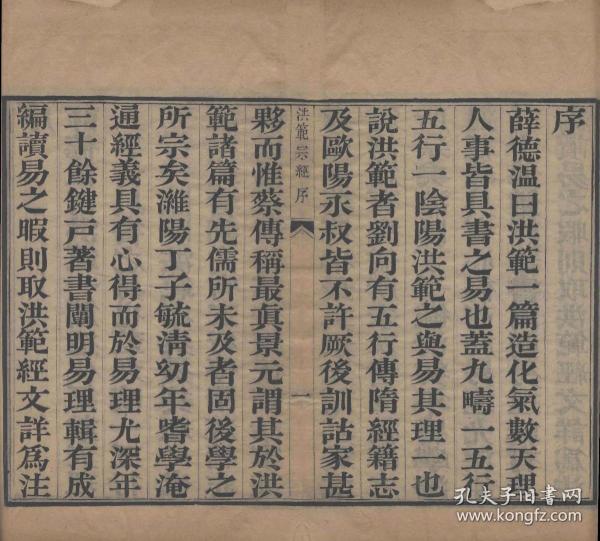 序
薛德温曰洪範一篇造化氣數天理
人事皆具書之易也蓋九疇一五行
五行一陰陽洪範之與易其理一也
說洪範者劉向有五行傳隋經籍志
及歐陽永叔皆不許厥後訓詁家甚
洪範宗經序
一
夥而惟蔡傳稱最眞景元謂其於洪
範諸篇有先儒所未及者固後學之
所宗矣濰陽丁子毓淸幼年嗜學淹
通經義具有心得而於易理尤深年
三十餘鍵戸著書闡明易理輯有成
編讀易之暇則取洪範經文詳爲注
孔夫子旧书网
www.kongfz.com